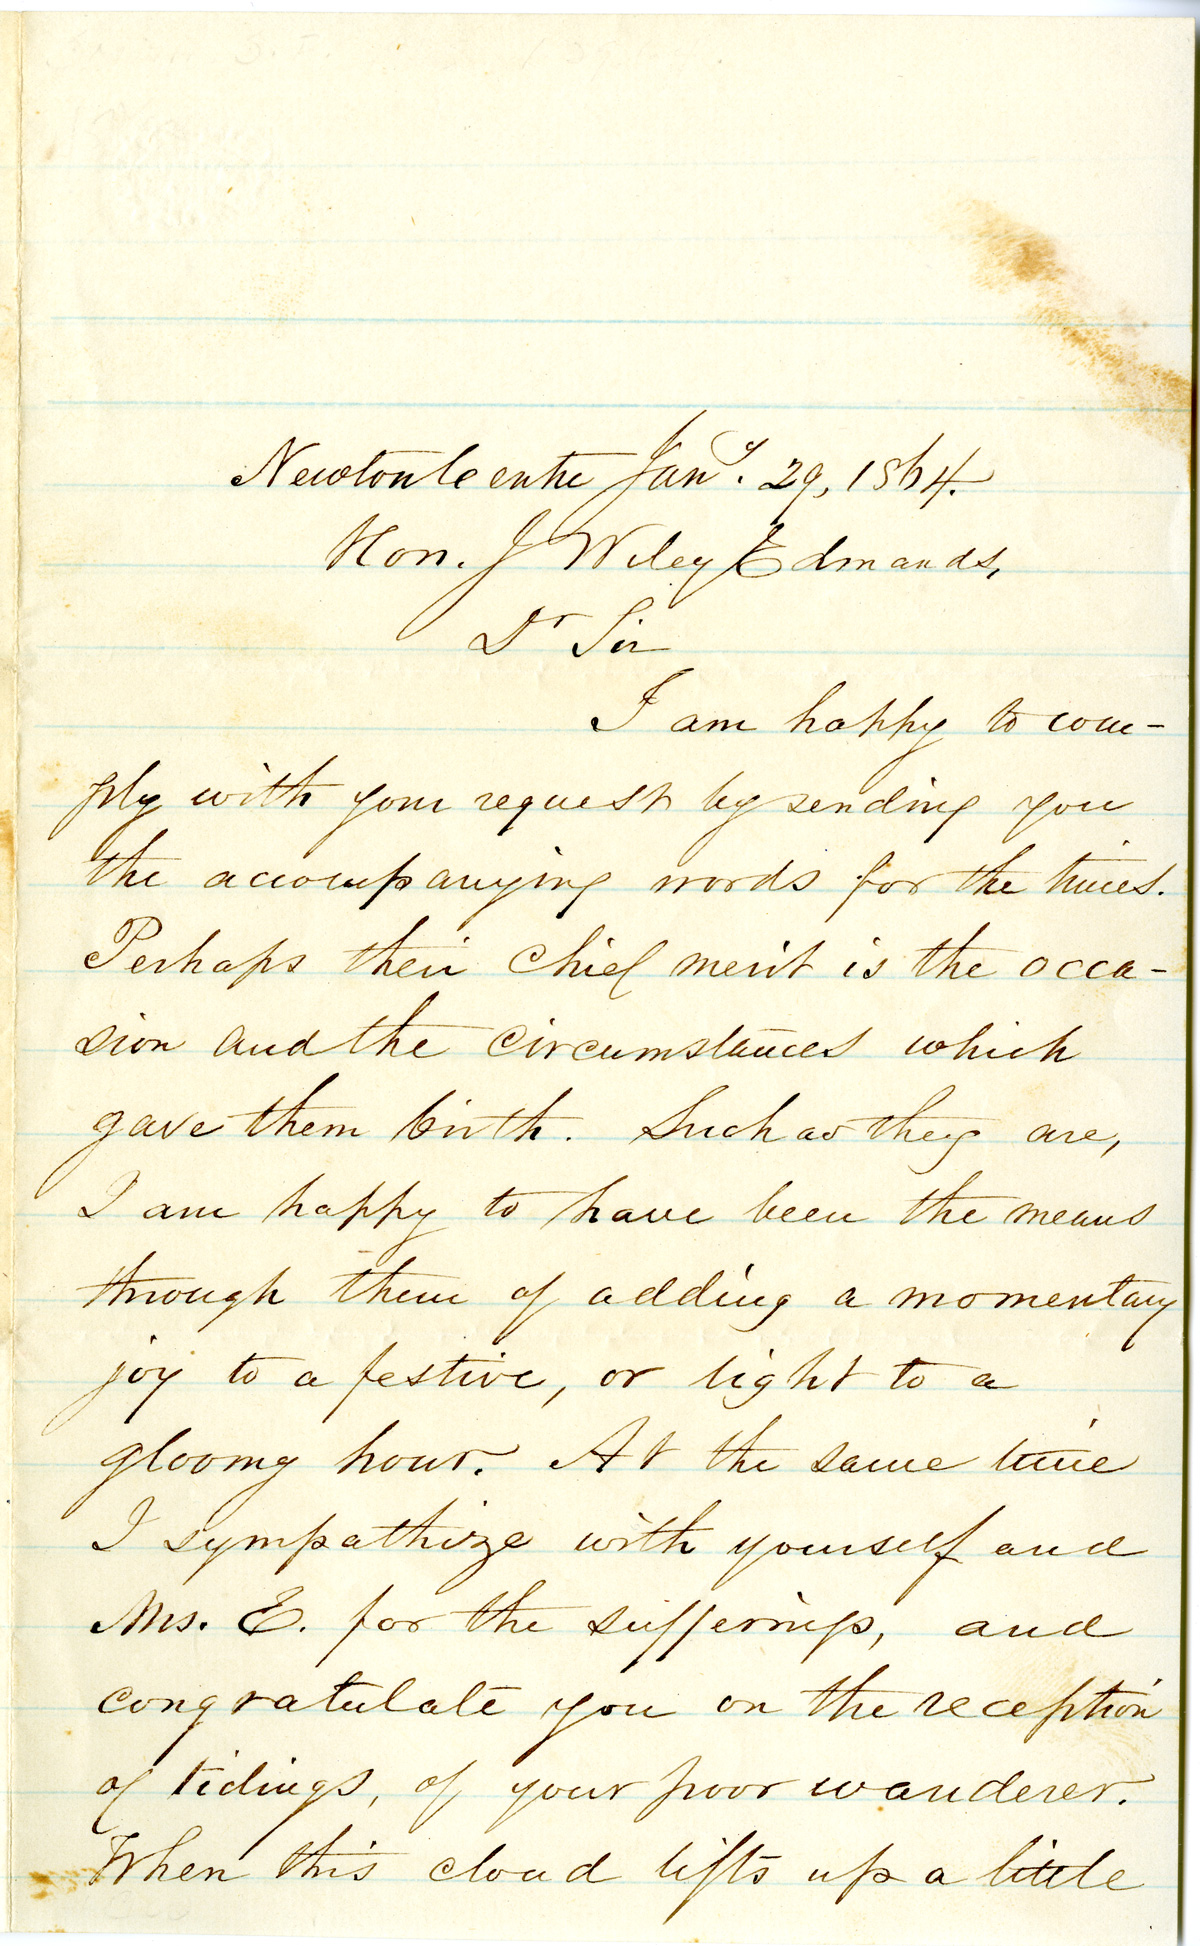 Newton Centre Jany. 29, 1864.
Hon. J Wiley Edmands,
Dr Sir
I am happy to com-
ply with your request by sending you
the accompanying words for the times.
Perhaps their chief merit is the occa-
sion and the circumstances which
gave them birth. Such as they are,
I am happy to have been the means
through them of adding a momentary
joy to a festive, or light to a
gloomy hour. At the same time
I sympathize with yourself and
Mrs. E. for the sufferings, and
congratulate you on the reception
of tidings, of your poor wanderer.
When this cloud lifts up a little